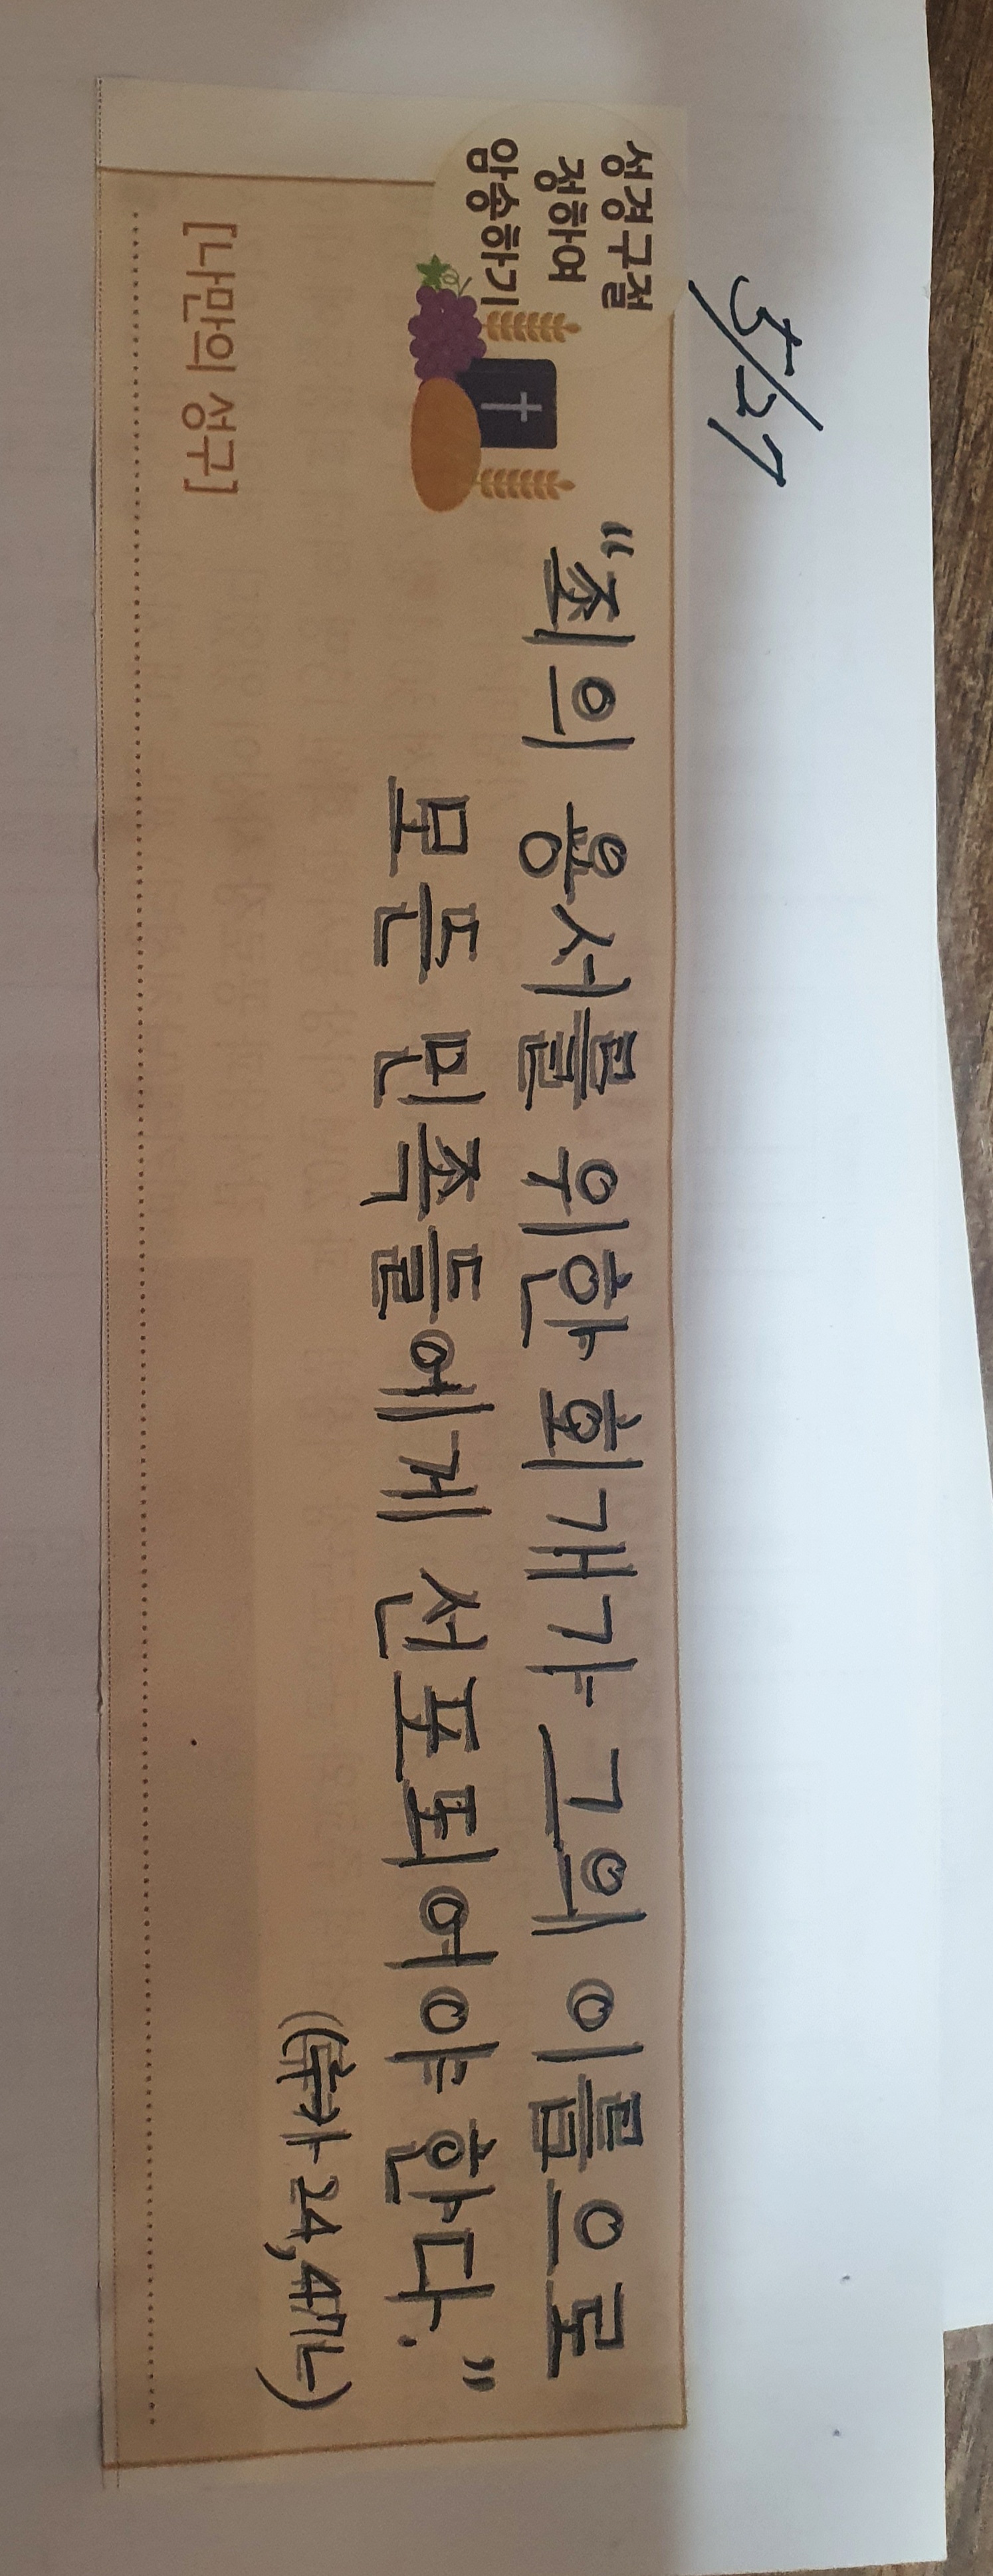 5/27
성경구절
정하여
암송하기
“죄의 용서를 위한 회개가 그의 이름으로
모든 민족들에게 선포되어야 한다.”
(루카 24,47ㄴ)
[나만의 성구]